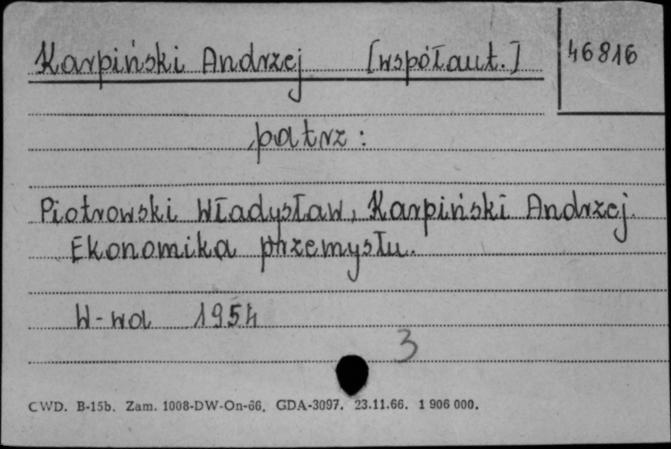 Karpiński Andrzej [współaut.] 46816
patrz:
Piotrowski Władysław, Karpiński Andrzej.
Ekonomika przemysłu.
W-wa 1954
3
CWD. B-15b. Zam. 1008-DW-On-66. GDA-3097. 23.11.66. 1 906 000.